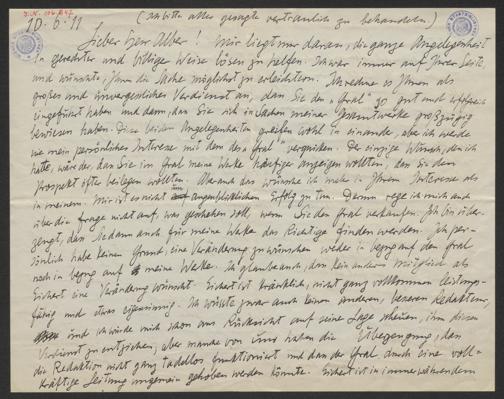 10.6.11 (ich bitte alles gesagte vertraulich zu behandeln)
Lieber Herr Alber! Mir liegt nur daran, die ganze Angelegenheit
in gerechter und billiger Weise lösen zu helfen. Ich war immer auf Ihrer Seite
und wünschte, Ihnen die Sache möglichst zu erleichtern. Ich rechne es Ihnen als
großes und unvergessliches Verdienst an, dass Sie den „Gral" so gut und erfolgreich
eingeführt haben und dann, dass Sie sich in Sachen meiner Gesamtwerke großzügig
bewiesen haben. Diese beiden Angelegenheiten greifen wohl in einander, aber ich werde
nie mein persönliches Interesse mit dem des „Gral" verquicken. Der einzige Wunsch, den ich
hätte, wäre der, dass Sie im Gral meine Werke häufiger anzeigen wollten, dass Sie dem
Prospekt öfte beilegen wollten. Aber auch das wünsche ich mehr in Ihrem Interesse als
in meinem. Mir ist es nicht um augenblicklichen Erfolg zu tun. Darum rege ich mich auch
über die Frage nicht auf, was geschehen soll, wenn Sie den Gral verkaufen. Ich bin über-
zeugt, dass Sie dann auch für meine Werke das Richtige finden werden. Ich per-
sönlich habe keinen Grund, eine Veränderung zu wünschen weder in bezug auf den Gral
noch in bezug auf meine Werke. Ich glaube auch, dass kein anderes Mitglied als
Eichert eine Veränderung wünscht. Eichert ist kränklich, nicht ganz vollkommen leistungs-
fähig und etwas eigensinnig. Ich wüsste zwar auch keinen anderen, besseren Redakteur,
und ich würde mich schon aus Rücksicht auf seine Lage scheuen, ihm diesen
Verdienst zu entziehen, aber manche von uns haben die Überzeugung, dass
die Redaktion nicht ganz tadellos funktioniert und dass der Gral durch eine voll-
kräftige Leitung ungemein gehoben werden könnte. Eichert ist in immerwährendem